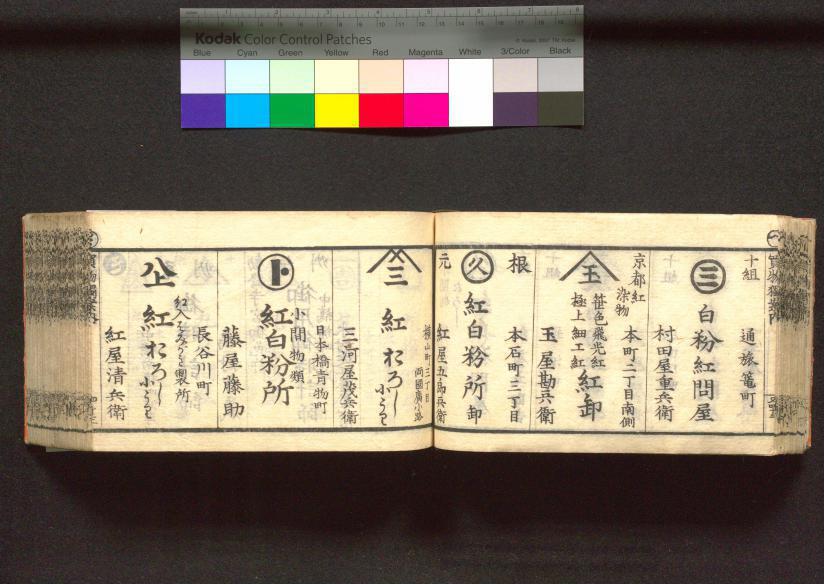 Kodak Color Control Patches
Blue Cyan Green Yellow Red Magenta White 3/Color Black
十組
通旅篭町
三
白粉紅問屋
村田屋重兵衛
京都紅
染物
本町二丁目南側
玉
笹色飛光紅
極上細工紅
紅卸
玉屋勘兵衛
根
本石町三丁目
久
紅白粉所
卸
元
横山町三丁目
両國廣小路
紅屋五郎兵衛
三
紅おろし
小うり
三河屋茂兵衛
日本橋青物町
小間物類
ト
紅白粉所
藤屋藤助
長谷川町
製所
紅おろし
小うり
紅屋清兵衛